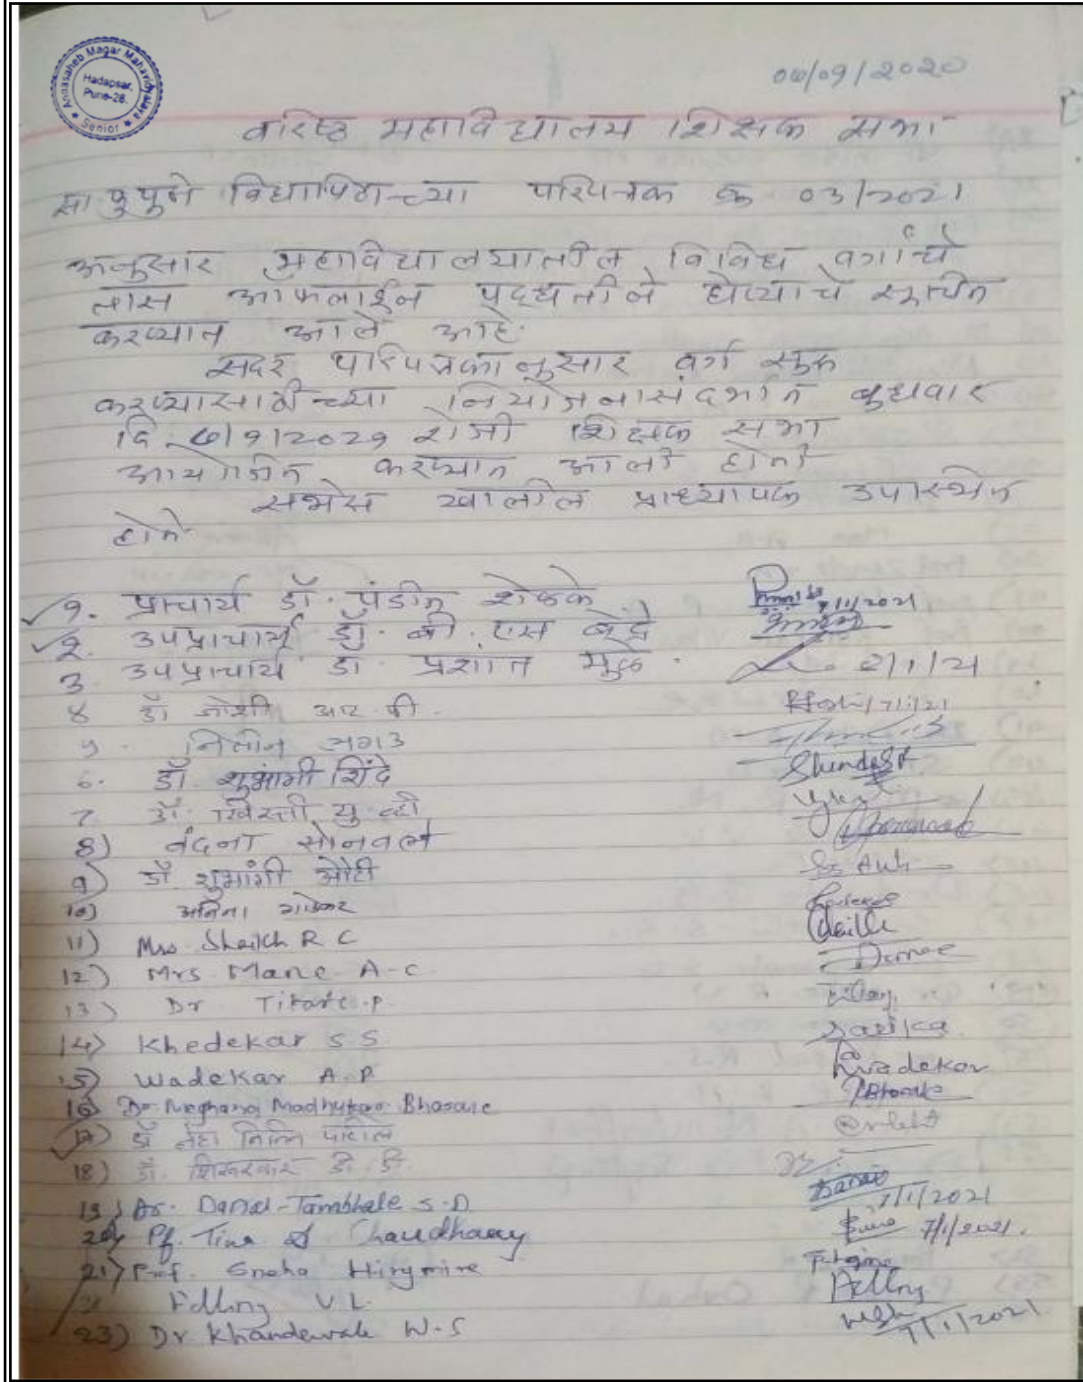 Annasaheb Magar Mahavidyalaya
Hadapsar,
Pune-28.
Senior
09/2020
वरिष्ठ महाविद्यालय शिक्षक सभा
विद्यापिठाच्या परिपत्रक क्र 03/2021
अनुसार महाविद्यालयातील विविध वर्गाचे
तास ऑफलाईन पद्धतीने घेण्याचे
करण्यात आले आहे.
सदर परिपत्रकानुसार वर्ग सुरू
करण्यासाठीच्या नियोजनासंदर्भात बुधवार
दि. रोजी शिक्षक सभा
आयोजीत करण्यात आली होती
सभेस खालील प्राध्यापक उपस्थित
होते
१. प्राचार्य डॉ. पंडीत शेळके
7/1/2021
२. उपप्राचार्य डॉ.
3. उपप्राचार्य डॉ. प्रशांत मुळे.
४ डॉ जोशी आर पी.
7/1/21
५. नितीन
६. डॉ. शुभांगी शिंदे
Shinde
७. डॉ. ख्रिस्ती यु. व्ही
8) वंदना सोनवले
9) डॉ शुभांगी औटी
10) अनिता
11) Mrs Shaikh R C
12) Mrs Mane A-C
13) Dr Titare.P.
14) Khedekar S S
Sarika
15) Wadekar A.P
Wadekar
16) Dr. Meghana Madhukar Bhosale
17) डॉ नितिन पाटील
18) डॉ. डी. डी.
19) Dr. Darad-Tambhale S.D
7/1/2021
20) Pf. Tina Chaudhary
7/1/2021.
21) Prof. Sneha Hirgmire
22 V L
23) Dr Khandewale W-S
7/1/2021